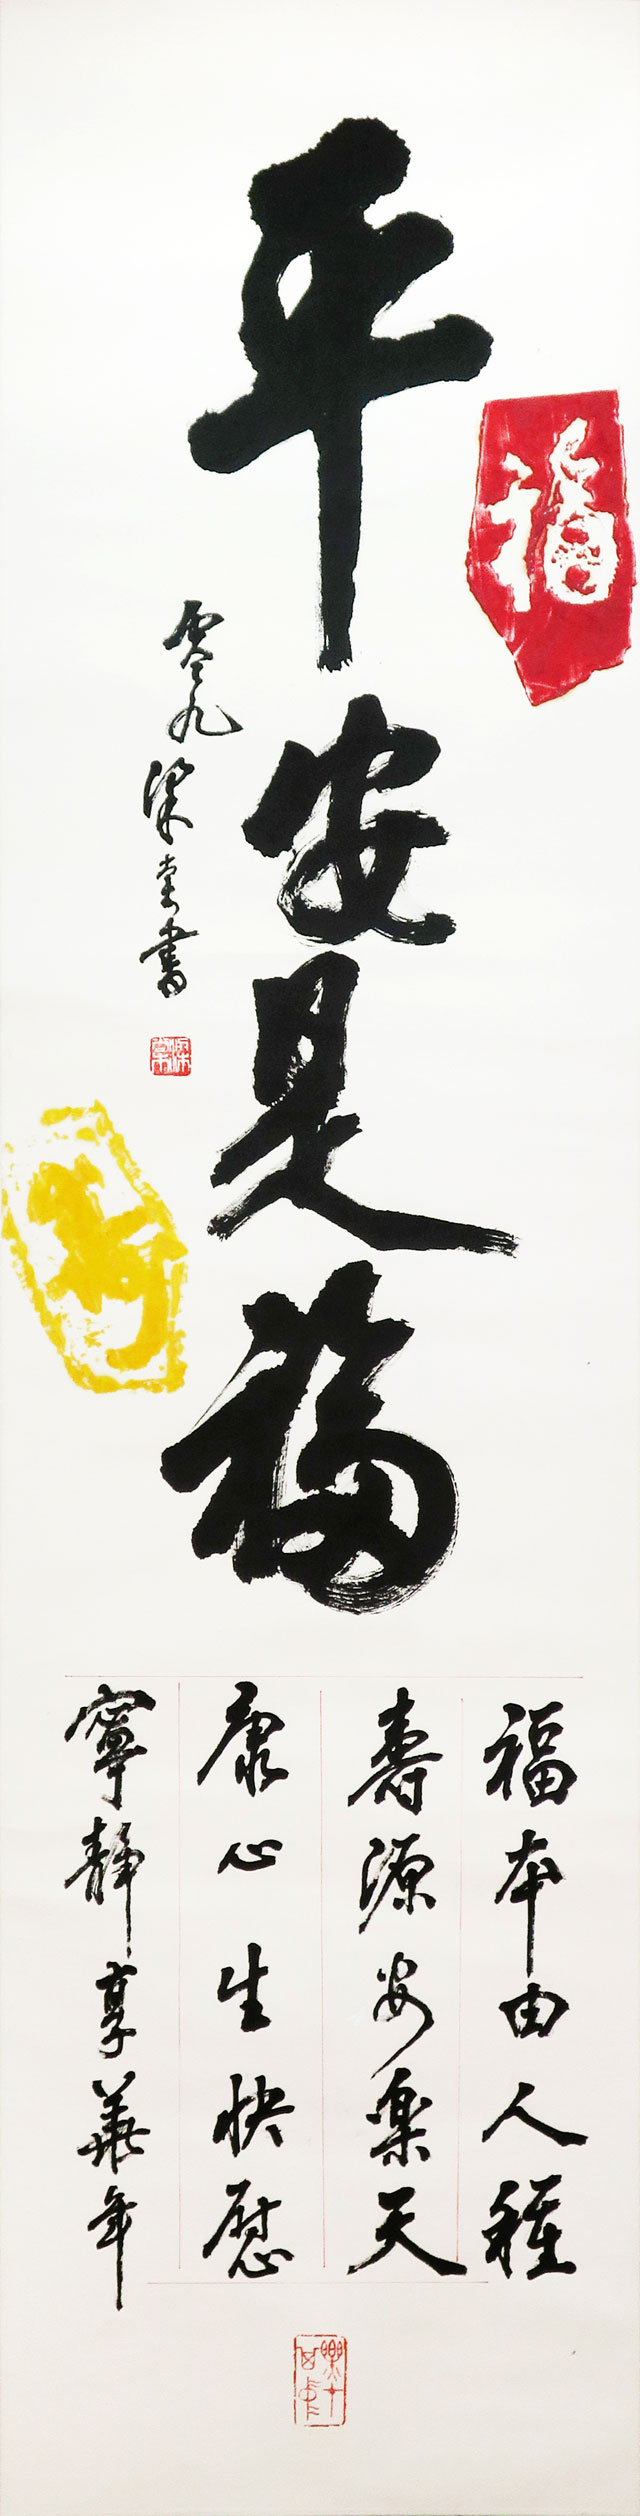 平安是福
福
零九
梁書
寿
福本由人種
壽源安楽天
康心生快慰
寧靜享華年